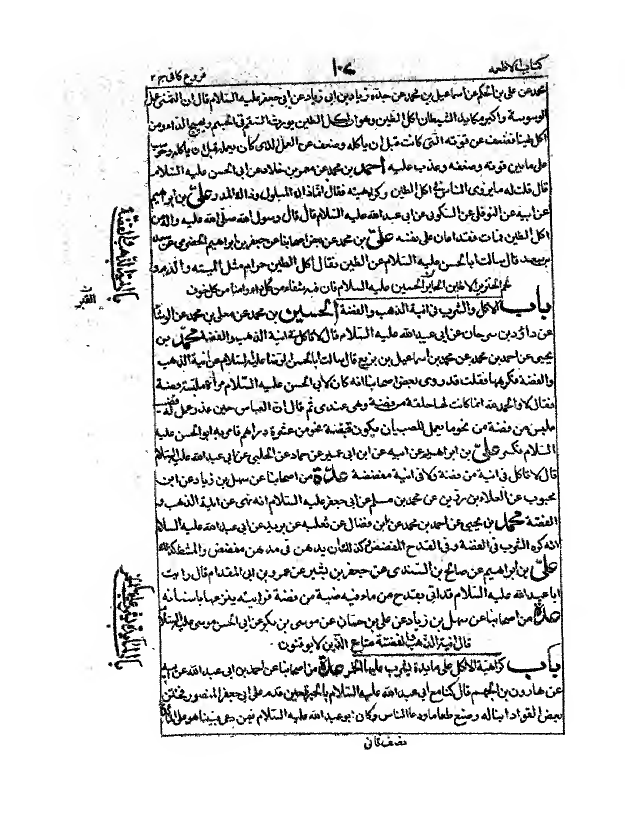 كتاب الاطعمه ١٠٧ فروع كافي ج ٢
محمد عن علي بن الحكم عن اسماعيل بن محمد عن جده زياد بن ابي زياد عن ابي جعفر عليه السلام قال ان التمني عمل
الوسوسة واكبر مكايد الشيطان اكل الطين وهو يورث السقم في الجسم ويهيج الداء ومن
اكل طينا فضعف عن قوته التي كانت قبل ان ياكله وضعف عن العمل الذي كان يعمله قبل ان ياكله حوسب
على ما بين قوته وضعفه وعذب عليه احمد بن محمد عن معمر بن خلاد عن ابي الحسن عليه السلام
قال قلت له ما يروي الناس في اكل الطين وكراهيته فقال انما ذاك المبلول وذاك المدر علي بن ابراهيم
عن ابيه عن النوفلي عن السكوني عن ابي عبد الله عليه السلام قال قال رسول الله صلى الله عليه واله من
اكل الطين فمات فقد اعان على نفسه علي بن محمد عن بعض اصحابنا عن جعفر بن ابراهيم الحضرمي عن سعد
بن سعد قال سالت ابا الحسن عليه السلام عن الطين فقال اكل الطين حرام مثل الميته والدم و
لحم الخنزير الا طين الحائر الحسين عليه السلام فان فيه شفاء من كل داء وامنا من كل خوف
باب الاكل والشرب في انية الذهب والفضة الحسين بن محمد عن معلى بن محمد عن الوشا
عن داود بن سرحان عن ابي عبد الله عليه السلام قال لا تاكل في انية الذهب والفضة محمد بن
يحيى عن احمد بن محمد عن محمد بن اسماعيل بن بزيع قال سالت ابا الحسن الرضا عليه السلام عن انية الذهب
والفضة فكرهها فقلت قد روى بعض اصحابنا انه كان لابي الحسن عليه السلام مراة ملبسة فضة
فقال لا والحمد لله انما كانت لها حلقة من فضة وهي عندي ثم قال ان العباس حين عذر عمل له قضيب
ملبس من فضة من نحو ما يعمل للصبيان يكون قبضته نحو من عشرة دراهم فامر به ابو الحسن عليه
السلام فكسر علي بن ابراهيم عن ابيه عن ابن ابي عمير عن حماد عن الحلبي عن ابي عبد الله عليه السلام
قال لا تاكل في انية من فضة ولا في انية مفضضة عدة من اصحابنا عن سهل بن زياد عن ابن
محبوب عن العلاء بن رزين عن محمد بن مسلم عن ابي جعفر عليه السلام انه نهى عن انية الذهب و
الفضة محمد بن يحيى عن احمد بن محمد عن ابن فضال عن ثعلبه عن بريد عن ابي عبد الله عليه السلام
انه كره الشرب في الفضة وفي القدح المفضض وكذلك ان يدهن في مدهن مفضض والمشطة كذلك
علي بن ابراهيم عن صالح بن السندي عن جعفر بن بشير عن عمرو بن ابي المقدام قال رايت
ابا عبد الله عليه السلام قد اتى بقدح من ماء فيه ضبة من فضة فرايته ينزعها باسنانه
عدة من اصحابنا عن سهل بن زياد عن علي بن حسان عن موسى بن بكر عن ابي الحسن موسى عليه السلام
قال انية الذهب والفضة متاع الذين لا يوقنون
باب كراهية الاكل على مايدة يشرب عليها الخمر عدة من اصحابنا عن احمد بن ابي عبد الله عن ابيه
عن هارون بن الجهم قال كنا مع ابي عبد الله عليه السلام بالحيرة حين قدم على ابي جعفر المنصور فختن
بعض القواد ابنا له وصنع طعاما ودعا الناس وكان ابو عبد الله عليه السلام فيمن دعي فبينا هو على المائدة